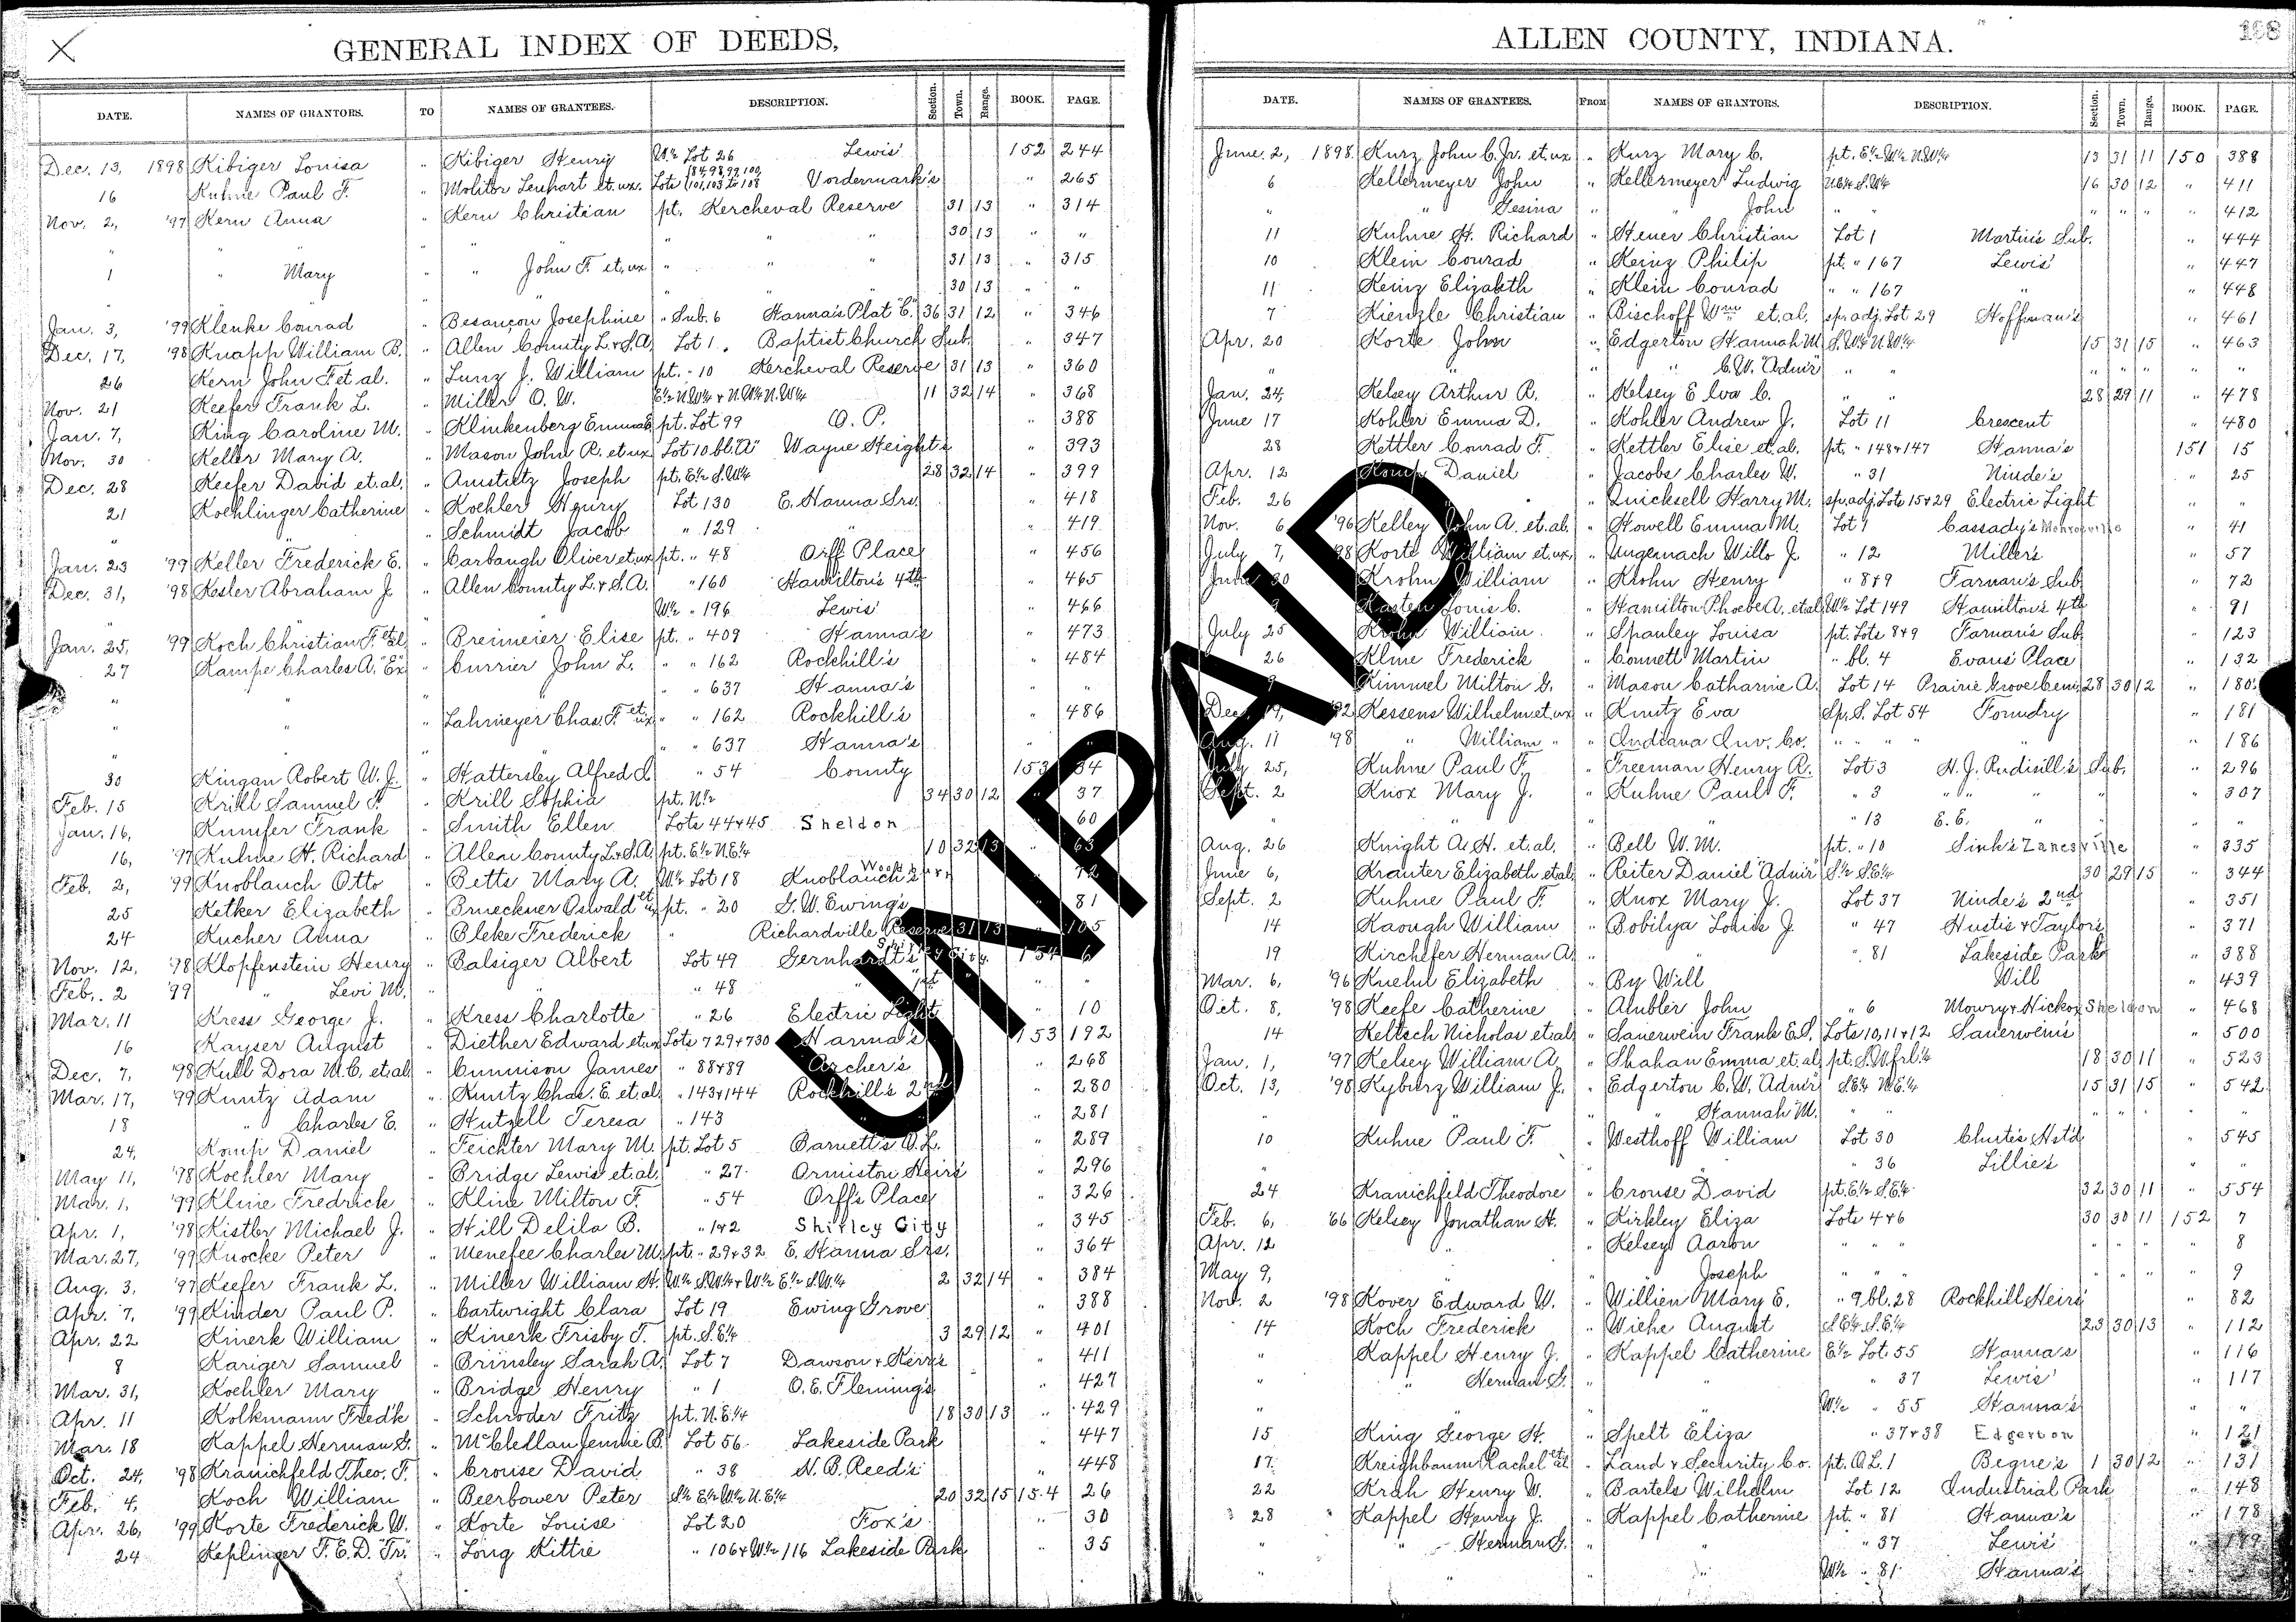 GENERAL INDEX OF DEEDS,
DATE. NAMES OF GRANTORS. TO NAMES OF GRANTEES. DESCRIPTION. Section. Town. Range. BOOK. PAGE.
Dec. 13, 1898 Kibiger Louisa " Kibiger Henry W½ Lot 26 Lewis' 152 244
16 Kuhne Paul F. " Molitor Lenhart et. ux. Lots 101, 103 to 108 Vordermark's " 265
Nov. 2, '97 Kern Anna " Kern Christian pt. Kercheval Reserve 31 13 " 314
" " " " " " 30 13 " "
1 " Mary " " John F. et. ux " " " 31 13 " 315
" 30 13 " "
Jan. 3, '99 Klenke Conrad " Besancon Josephine " Sub. 6 Hanna's Plat "C" 36 31 12 " 346
Dec. 17, '98 Knapp William B. " Allen County L. & S. A. Lot 1. Baptist Church Sub. " 347
26 Kern John F et al. " Lunz J. William pt. " 10 Kercheval Reserve 31 13 " 360
Nov. 21 Keefer Frank L. " Miller O. W. E½ N.W¼ & N.W¼ N.W¼ 11 32 14 " 368
Jan. 7, King Caroline M. " Klinkenberg Emma E. pt. Lot 99 O. P. " 388
Nov. 30 Keller Mary A. " Mason John R. et ux Lot 10 bl. "A" Wayne Heights " 393
Dec. 28 Keefer David et. al. " Amstutz Joseph pt. E½ S.W¼ 28 32 14 " 399
21 Koehlinger Catherine " Koehler Henry Lot 130 E. Hanna Srs. " 418
" Schmidt Jacob " 129 " " 419
Jan. 23 '99 Keller Frederick E. " Carbaugh Oliver et ux pt. " 48 Orff Place " 456
Dec. 31, '98 Kesler Abraham J. " Allen County L. & S. A. " 160 Hamilton's 4th " 465
W½ " 196 Lewis' " 466
Jan. 25, '99 Koch Christian F. et al. " Breimeier Elise pt. " 409 Hanna's " 473
27 Kampe Charles A. "Ex" " Currier John L. " " 162 Rockhill's " 484
" " " " 637 Hanna's " "
" " " Lahmeyer Chas. F. et ux " " 162 Rockhill's " 486
" " " " " 637 Hanna's " "
30 Kingan Robert W. J. " Hattersley Alfred S. " 54 County 153 34
Feb. 15 Krill Samuel F. " Krill Sophia pt. N½ 34 30 12 " 37
Jan. 16, Kumfer Frank " Smith Ellen Lots 44 & 45 Sheldon 60
16, '97 Kuhne H. Richard " Allen County L. & S. A. pt. E½ N.E¼ 10 32 13 " 63
Feb. 2, '99 Knoblauch Otto " Bette Mary A. W½ Lot 18 Knoblauch's Woodburn 72
25 Ketker Elizabeth " Brueckner Oswald et ux pt. " 20 G. W. Ewing's " 81
24 Kucher Anna " Bleke Frederick " Richardville Reserve 31 13 105
Nov. 12, '98 Klopfenstein Henry " Balsiger Albert Lot 49 Gernhardt's Shirley City. 154 6
Feb. 2 '99 " Levi M. " " " 48 " 1st " "
Mar. 11 Kress George J. " Kress Charlotte " 26 Electric Light 10
16 Kayser August " Diether Edward et ux Lots 729 & 730 Hanna's 153 192
Dec. 7, '98 Kull Dora M. C. et. al. " Cunnison James " 88 & 89 Archer's " 268
Mar. 17, '99 Kuntz Adam " Kuntz Chas. E. et. al. " 143 & 144 Rockhill's 2nd " 280
18 " Charles E. " Hutzell Teresa " 143 " 281
24, Komp Daniel " Feichter Mary M. pt. Lot 5 Barnett's O. L. " 289
May 11, '98 Koehler Mary " Bridge Lewis et. al. " 27 Ormiston Heirs' " 296
Mar. 1, '99 Kline Fredrick " Kline Milton F. " 54 Orff's Place " 326
Apr. 1, '98 Kistler Michael J. " Hill Delila B. " 1 & 2 Shirley City " 345
Mar. 27, '99 Knocke Peter " Menefee Charles M. pt. " 29 & 32 E. Hanna Srs. " 364
Aug. 3, '97 Keefer Frank L. " Miller William H. W½ S.W¼ & W½ E½ S.W¼ 2 32 14 " 384
Apr. 7, '99 Kinder Paul P. " Cartwright Clara Lot 19 Ewing Grove " 388
Apr. 22 Kinerk William " Kinerk Frisby T. pt. S.E¼ 3 29 12 " 401
8 Kariger Samuel " Brinsley Sarah A. Lot 7 Dawson & Kerr's " 411
Mar. 31, Koehler Mary " Bridge Henry " 1 O. E. Fleming's " 427
Apr. 11 Kolkmann Fred'k " Schroder Fritz pt. N. E¼ 18 30 13 " 429
Mar. 18 Kappel Herman G. " McClellan Jennie B. Lot 56 Lakeside Park " 447
Oct. 24, '98 Kranichfeld Theo. F. " Crouse David " 38 N. B. Reed's " 448
Feb. 4, Koch William " Beerbower Peter S½ E½ W½ N.E¼ 20 32 15 154 26
Apr. 26, '99 Korte Frederick W. " Korte Louise Lot 20 Fox's " 30
24 Keplinger F. E. D. "Tr." " Long Kittie " 106 & W½ 116 Lakeside Park " 35
ALLEN COUNTY, INDIANA.
198
DATE. NAMES OF GRANTEES. FROM NAMES OF GRANTORS. DESCRIPTION. Section. Town. Range. BOOK. PAGE.
June 2, 1898 Kurz John C. Jr. et. ux " Kurz Mary C. pt. E½ W½ N.W¼ 13 31 11 150 388
6 Kellermeyer John " Kellermeyer Ludwig N.E¼ S.W¼ 16 30 12 " 411
" " Gesina " " John " " " " " " 412
11 Kuhne H. Richard " Heuer Christian Lot 1 Martin's Sub. " 444
10 Klein Conrad " Keinz Philip pt. " 167 Lewis' " 447
11 Keinz Elizabeth " Klein Conrad " " 167 " " 448
7 Kienzle Christian " Bischoff Wm et. al. sp. adj. Lot 29 Hoffman's " 461
Apr. 20 Korte John " Edgerton Hannah M. S.W¼ N.W¼ 15 31 15 " 463
" " " C. W. "Admr" " " " " " " "
Jan. 24, Kelsey Arthur R. " Kelsey E Iva C. " " 28 29 11 " 478
June 17 Kohler Emma D. " Kohler Andrew J. Lot 11 Crescent " 480
28 Kettler Conrad F. " Kettler Elise et. al. pt. " 148 & 147 Hanna's 151 15
Apr. 12 Komp Daniel " Jacobs Charles W. " 31 Ninde's " 25
Feb. 26 " " Quicksell Harry M. sp. adj. Lots 15 & 29 Electric Light " "
Nov. 6 '96 Kelley John A. et. al. " Howell Emma M. Lot 1 Cassady's Monroeville " 41
July 7, '98 Korte William et. ux. " Ungemach Wilto J. " 12 Miller's " 57
June 30 Krohn William " Krohn Henry " 8 & 9 Farnan's Sub. " 72
9 Kasten Louis C. " Hamilton Phoebe A. et al. W½ Lot 149 Hamilton's 4th " 91
July 25 Krohn William " Spanley Louisa pt. Lots 8 & 9 Farnan's Sub. " 123
26 Kline Frederick " Connett Martin " bl. 4 Evans' Place " 132
9 Kimmel Milton G. " Mason Catharine A. Lot 14 Prairie Grove Cem. 28 30 12 " 180
Dec. 19, '92 Kessens Wilhelm et. ux " Kuntz Eva Sp. S. Lot 54 Foundry " 181
Aug. 11 '98 " William " " Indiana Inv. Co. " " " " " 186
July 25, Kuhne Paul F. " Freeman Henry R. Lot 3 H. J. Rudisill's Sub. " 296
Sept. 2 Knox Mary J. " Kuhne Paul F. " 3 " " " " 307
" " " " " 13 E. E. " " "
Aug. 26 Knight A. H. et. al. " Bell W. M. pt. " 10 Sink's Zanesville " 335
June 6, Krauter Elizabeth et al. " Reiter Daniel "Admr" S½ S.E¼ 30 29 15 " 344
Sept. 2 Kuhne Paul F. " Knox Mary J. Lot 37 Ninde's 2nd " 351
14 Kaough William " Bobilya Louis J. " 47 Hustis & Taylor's " 371
19 Kircheifer Herman A. " " " 81 Lakeside Park " 388
Mar. 6, '96 Kuehn Elizabeth " By Will Will " 439
Oct. 8, '98 Keefe Catherine " Ambler John " 6 Mowry & Nickox Sheldon " 468
14 Keltsch Nicholas et al. " Sauerwein Frank E. S. Lots 10, 11 & 12 Sauerwein's " 500
Jan. 1, '97 Kelsey William A. " Shahan Emma et. al. pt. S.W. frl. ¼ 18 30 11 " 523
Oct. 13, '98 Kyburz William J. " Edgerton C. W. "Admr" S.E¼ N.E¼ 15 31 15 " 542
" " " " Hannah M. " " " " " " "
10 Kuhne Paul F. " Westhoff William Lot 30 Chute's Hst'd " 545
" " 36 Lillie's " "
24 Kranichfeld Theodore " Crouse David pt. E½ S.E¼ 32 30 11 " 554
Feb. 6, '66 Kelsey Jonathan H. " Kirkley Eliza Lots 4 & 6 30 30 11 152 7
Apr. 12 " " Kelsey Aaron " " " " " " " 8
May 9, " " " Joseph " " " " " " " 9
Nov. 2 '98 Kover Edward W. " Willien Mary E. " 9 bl. 28 Rockhill Heirs' " 82
14 Koch Frederick " Wiehe August S.E¼ S.E¼ 23 30 13 " 112
" Kappel Henry J. " Kappel Catherine E½ Lot 55 Hanna's " 116
" " Herman G. " " " 37 Lewis' " 117
" " " " W½ " 55 Hanna's " "
15 King George H. " Spelt Eliza " 37 & 38 Edgerton " 121
17 Kreighbaum Rachel et al. " Land & Security Co. pt. O. L. 1 Begue's 1 30 12 " 131
22 Krah Henry W. " Bartels Wilhelm Lot 12 Industrial Park " 148
28 Kappel Henry J. " Kappel Catherine pt. " 81 Hanna's " 178
" " Herman G. " " " 37 Lewis' " 179
" " " W½ " 81 Hanna's
UNPAID